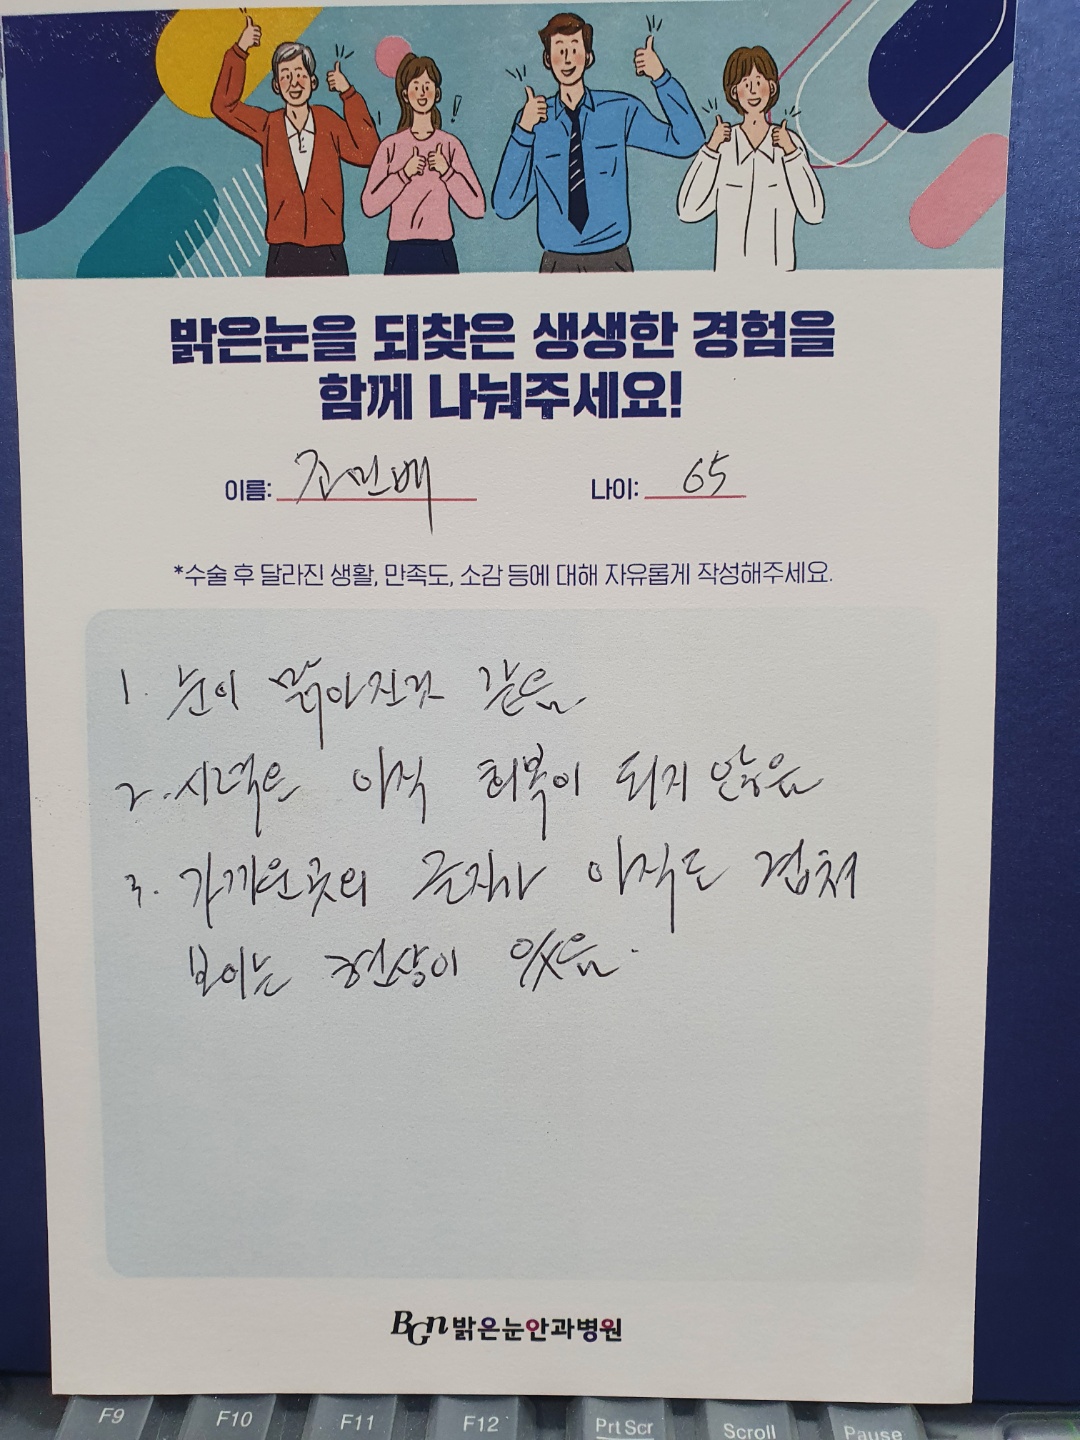 밝은눈을 되찾은 생생한 경험을
함께 나눠주세요!
이름: 조민배 나이: 65
*수술 후 달라진 생활, 만족도, 소감 등에 대해 자유롭게 작성해주세요.
1. 눈이 맑아진것 같음.
2. 시력은 아직 회복이 되지 않음
3. 가까운곳의 글자가 아직도 겹쳐
보이는 현상이 있음.
BGN 밝은눈안과병원
F9 F10 F11 F12 Prt Scr Scroll Pause